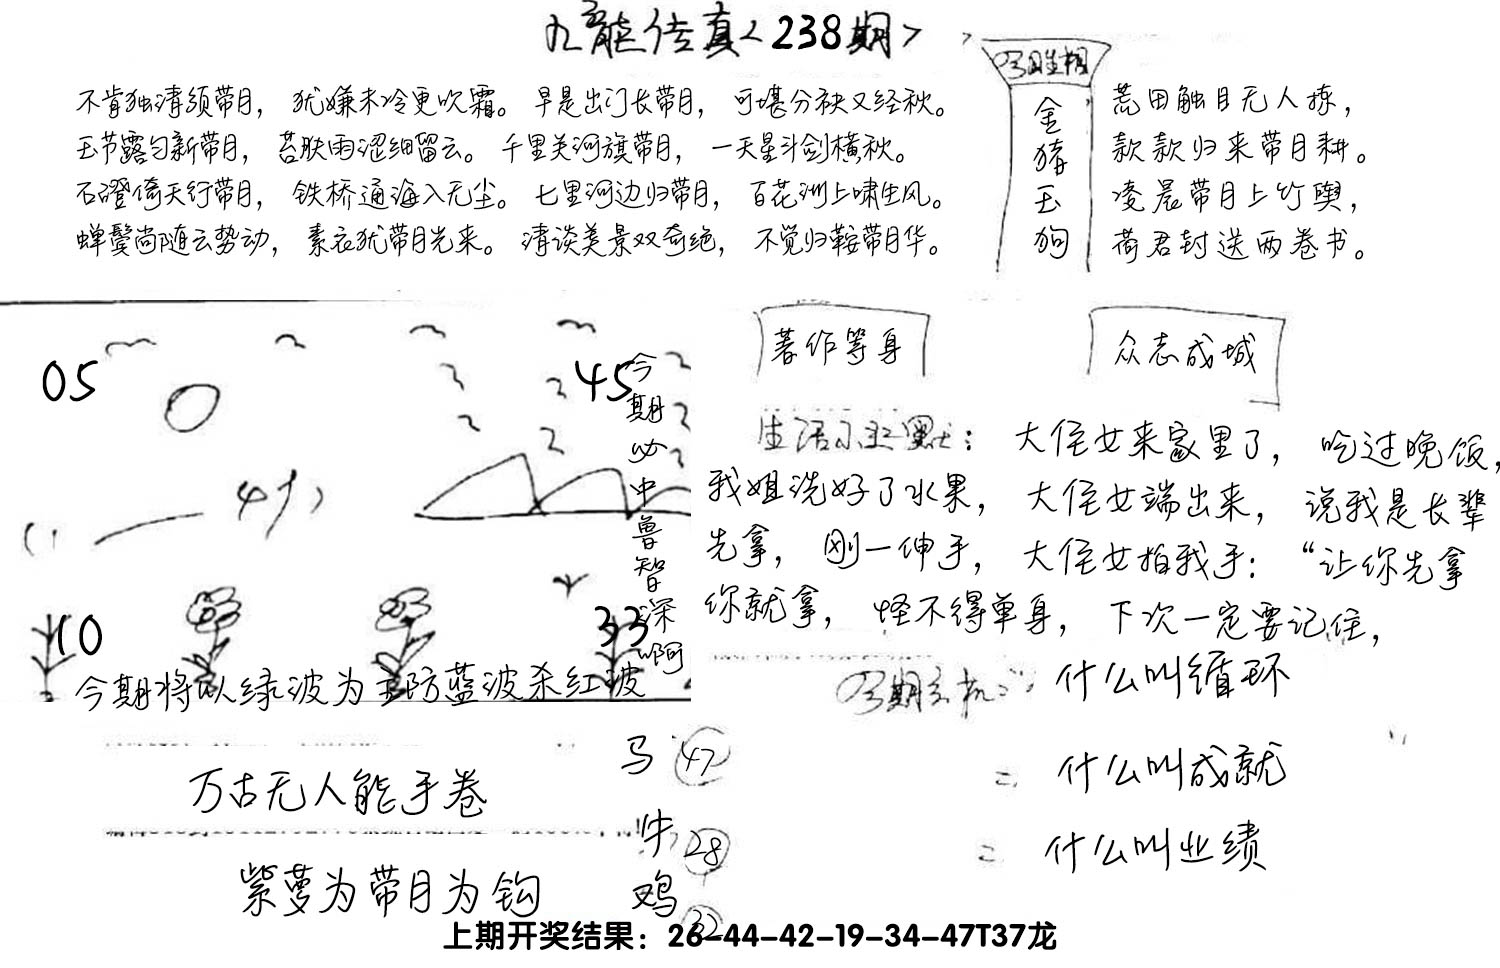 九龙传真<238期>
不肯独清须带月，犹嫌未冷更吹霜。早是出门长带月，可堪分袂又经秋。
玉节露匀新带月，苔肤雨涩细留云。千里关河旗带月，一天星斗剑横秋。
石磴倚天行带月，铁桥通海入无尘。七里河边归带月，百花洲上啸生风。
蝉鬓尚随云势动，素衣犹带月光来。清谈美景双奇绝，不觉归鞍带月华。
金猪玉狗
荒田触目无人拣，
款款归来带月耕。
凌晨带月上竹舆，
荷君封送两卷书。
05
45
10
33
今期必中鲁智深啊
今期将以绿波为主防蓝波杀红波
著作等身
众志成城
大侄女来家里了，吃过晚饭，
我姐洗好了水果，大侄女端出来，说我是长辈
先拿，刚一伸手，大侄女拍我手：“让你先拿
你就拿，怪不得单身，下次一定要记住，
什么叫循环
什么叫成就
什么叫业绩
万古无人能手卷
紫萝为带月为钩
马 47
牛 28
鸡 32
上期开奖结果：26-44-42-19-34-47T37龙